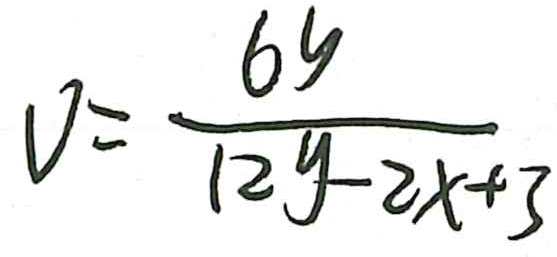 V = \frac{6y}{12y - 2x + 3}